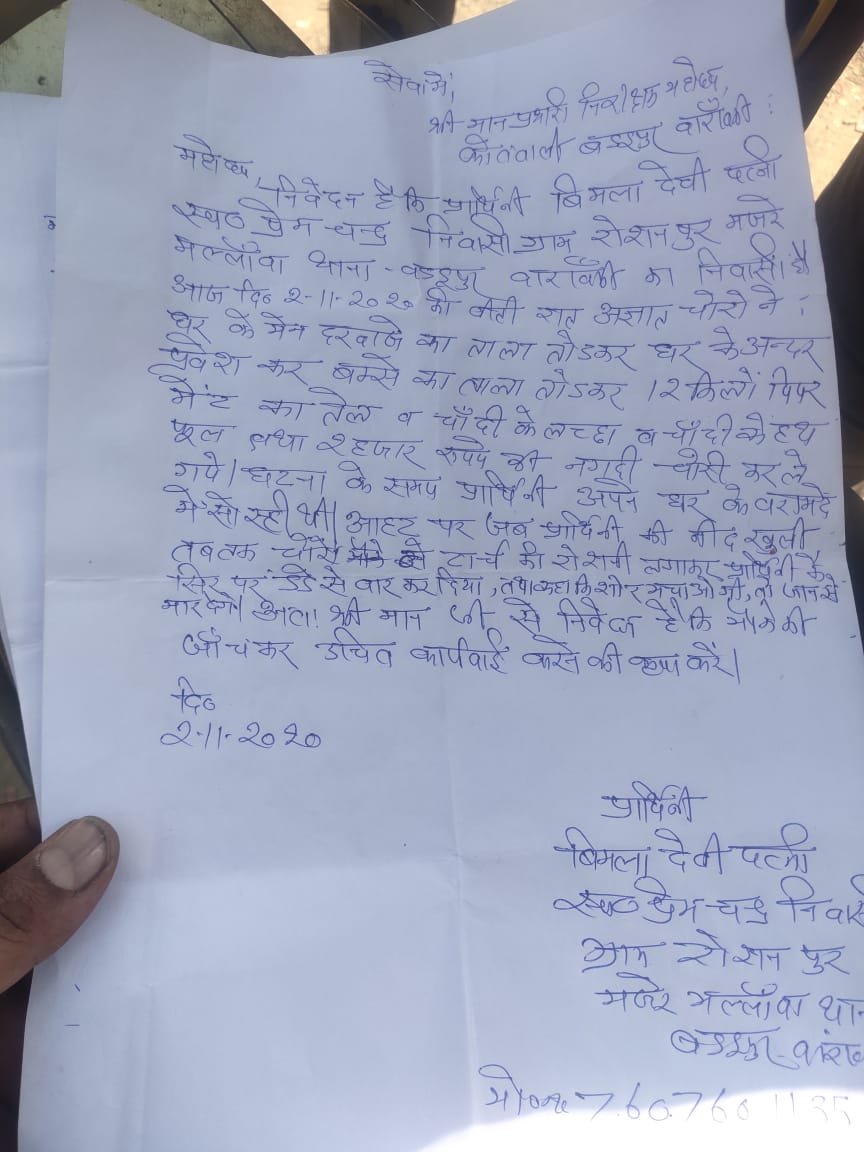 सेवा में,
श्री मान प्रभारी निरीक्षक महोदय,
कोतवाली बड्डूपुर बाराबंकी
महोदय,
निवेदन है कि प्रार्थिनी बिमला देवी पत्नी
स्व० प्रेम चन्द्र निवासी ग्राम रोशनपुर मजरे
मल्लाँवा थाना - बड्डूपुर बाराबंकी का निवासी है
आज दि० 2-11-2020 की बीती रात अज्ञात चोरो ने
घर के मेन दरवाजे का ताला तोडकर घर के अन्दर
प्रवेश कर बक्से का ताला तोडकर 12 किलो पिपर
मेंट का तेल व चाँदी के लच्छा व चाँदी के हथ
फूल तथा 2 हजार रूपये की नगदी चोरी कर ले
गये। घटना के समय प्रार्थिनी अपने घर के बरामदे
में सो रही थी। आहट पर जब प्रार्थिनी की नीद खुली
तब तक चोरो ने टार्च की रोशनी लगाकर प्रार्थिनी के
सिर पर डंडे से वार कर दिया, तथा कहा कि शोर मचाओगी, तो जान से
मार देंगे। अतः श्री मान जी से निवेदन है कि मौके की
जाँच कर उचित कार्यवाई करने की कृपा करें।
दि०
2-11-2020
प्रार्थिनी
बिमला देवी पत्नी
स्व० प्रेम चन्द्र निवासी
ग्राम रोशन पुर
मजरे मल्लाँवा थाना
बड्डूपुर
मो०न०